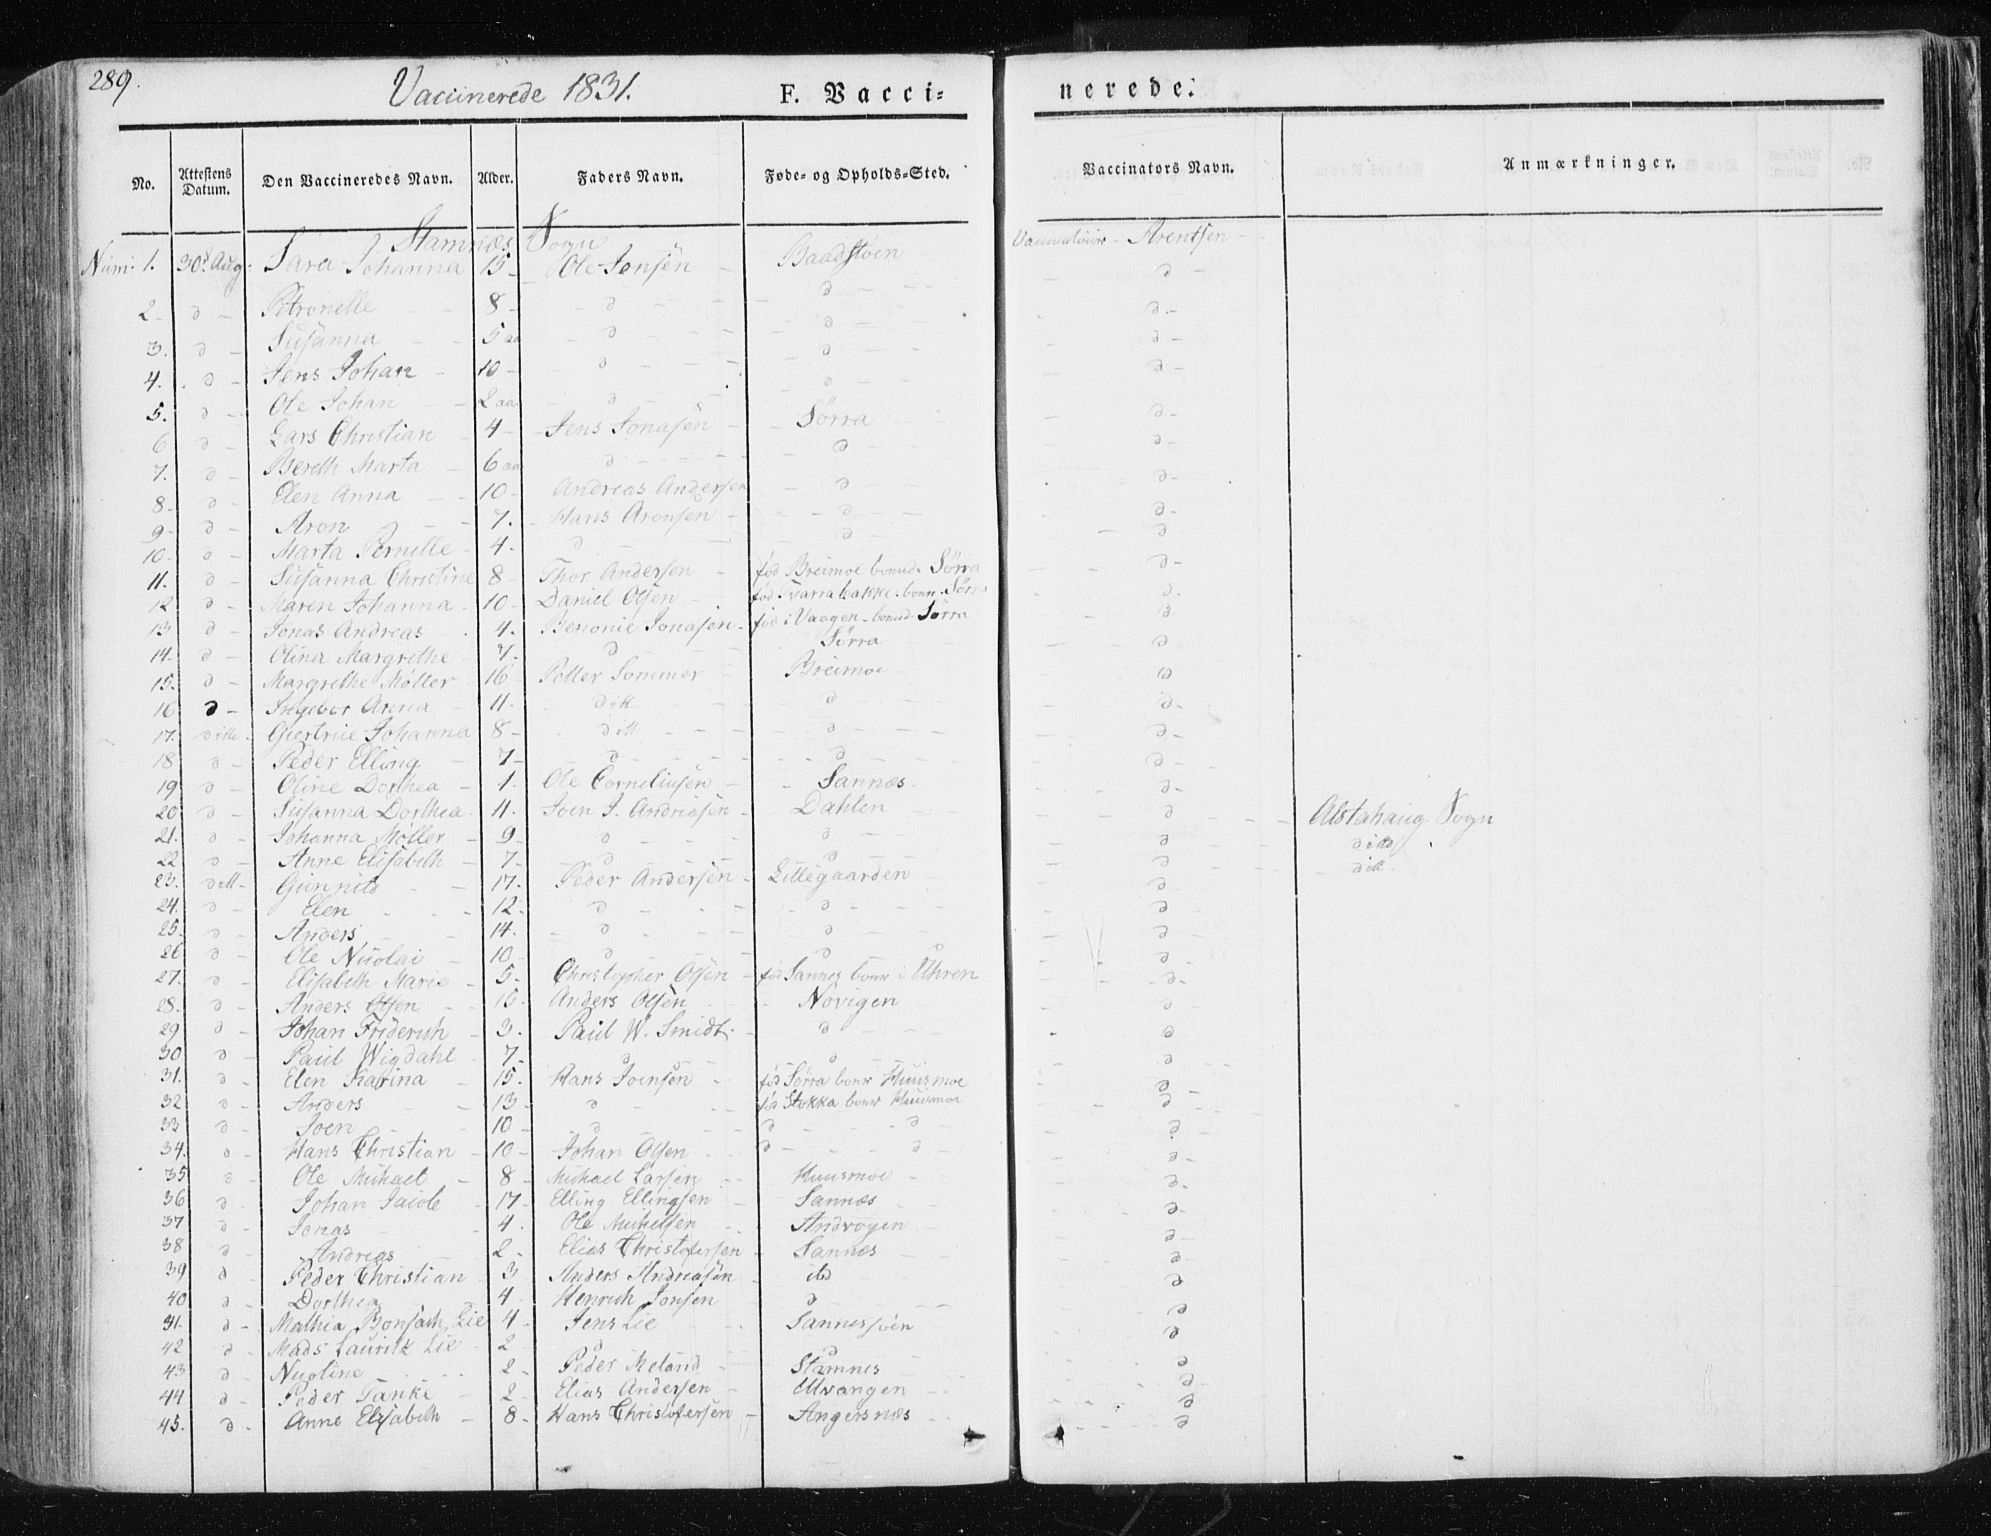 289. Vaccinerede 1831. F. Vacci= nerede.
No. Attestens Datum. Den Vaccineredes Navn. Alder. Faders Navn. Føde- og Opholds-Sted. Vaccinators Navn. Anmærkninger.
Stamnæs Sogn
Num: 1. 30te Aug. Sara Johanna 15 - Ole Jensen - Baadstoen Vaccinateur - Arentsen -
2 - d - Petronelle - - 8 - d - d - d -
3. d - Susanna - - 5 aa d - d - d -
4. d - Jens Johan - 10 - d - d - d -
5. d - Ole Johan - 2 aa - d - d - d -
6 d - Lars Christian - 4 - Jens Jonasen - Sørra d -
7. d - Bereth Marta - 6 aa d - d d -
8. d - Elen Anna - - 10 - Andreas Andersen - d - d -
9 - d - Aron - - 7. - Hans Aronsen - - d - d -
10. d - Marta Pernelle - 4. d - d - d
11. d - Susanna Christine 8 - Thor Andersen - fød Breimoe bonde Sørra d -
12 d - Maren Johanna - 10. Daniel Olsen - fød Tvarrabakke. boen. Sørra d.
13 d - Jonas Andreas - 4. Benonie Jonasen - fød i Vaagen - bonde Sørra d
14. d - Olina Margrethe - 7. d - Sørra d
15. d - Margrethe Møller 16 Petter Sommer - Breimoe d
16 d - Ingebor Anna - 11. ditt d d -
17. ditto. Giertrue Johanna 8 - ditt - d - d -
18 d - Peder Elling - 7 - d - d d -
19 d - Oline Dorthea - 1. Ole Corneliusen - Sannæs. d -
20 d - Susanna Dorthea. 11. Joen J. Andreasen - Dahlen - d Alstahaug Sogn
21. d - Johanna Møller - 9 - d - d - d ditto
22 d - Anne Elisabeth - 7 - d d d ditt.
23. ditt - Gunnild - 17. Peder Andersen - Lillegaarden d
24. d - Elen - 12 - d - d - d
25. d - Anders - 14. d - d - d -
26 d - Ole Nicolai - 10 - d d d
27. d - Elisabeth Marie - 5. Christopher Olsen - fød Sannes boer i Uhren d -
28. d - Anders Olsen - 10 Anders Olsen - Novigen d
29 d - Johan Friderich - 3. Paul W. Smidt. - d - d
30 d - Paul Wigdahl - 7 - d d d
31. d - Elen Katrina - 15. Hans Joensen - fød Sørra boer Huusmoe d -
32 d - Anders - 13 - d - fø Stokka boer Huusmoe d -
33 d - Joen - 10 - d - d - d d
34. d - Hans Christian - 10 - Johan Olsen d - d d -
35 d - Ole Michael - 8 - Michael Larsen - Huusmoe - d -
36 d - Johan Jacob - 17 - Elling Ellingsen - Sannæs d -
37 d - Jonas - 4. Ole Michelsen - Andvogen d
38 d - Andreas - 2 - Elias Christofersen - Sannæs d -
39 d - Peder Christian - 3 Anders Andreasen - ibd d
40 d - Dorthea - 4 - Henrich Jonsen d d
31. d - Mathia Bonsach Lie 4 Jens Lie - Sannessjöen d
42 d - Mads Lauritz Lie - 2 - d d d
43 d - Nicoline - 2 - Peder Meland - Stamnes d
44 d - Peder Tanke - 2 - Elias Andersen - Ulvangen d
45. d - Anne Elisabeth - 8 - Hans Christofersen - Angersnæs - d